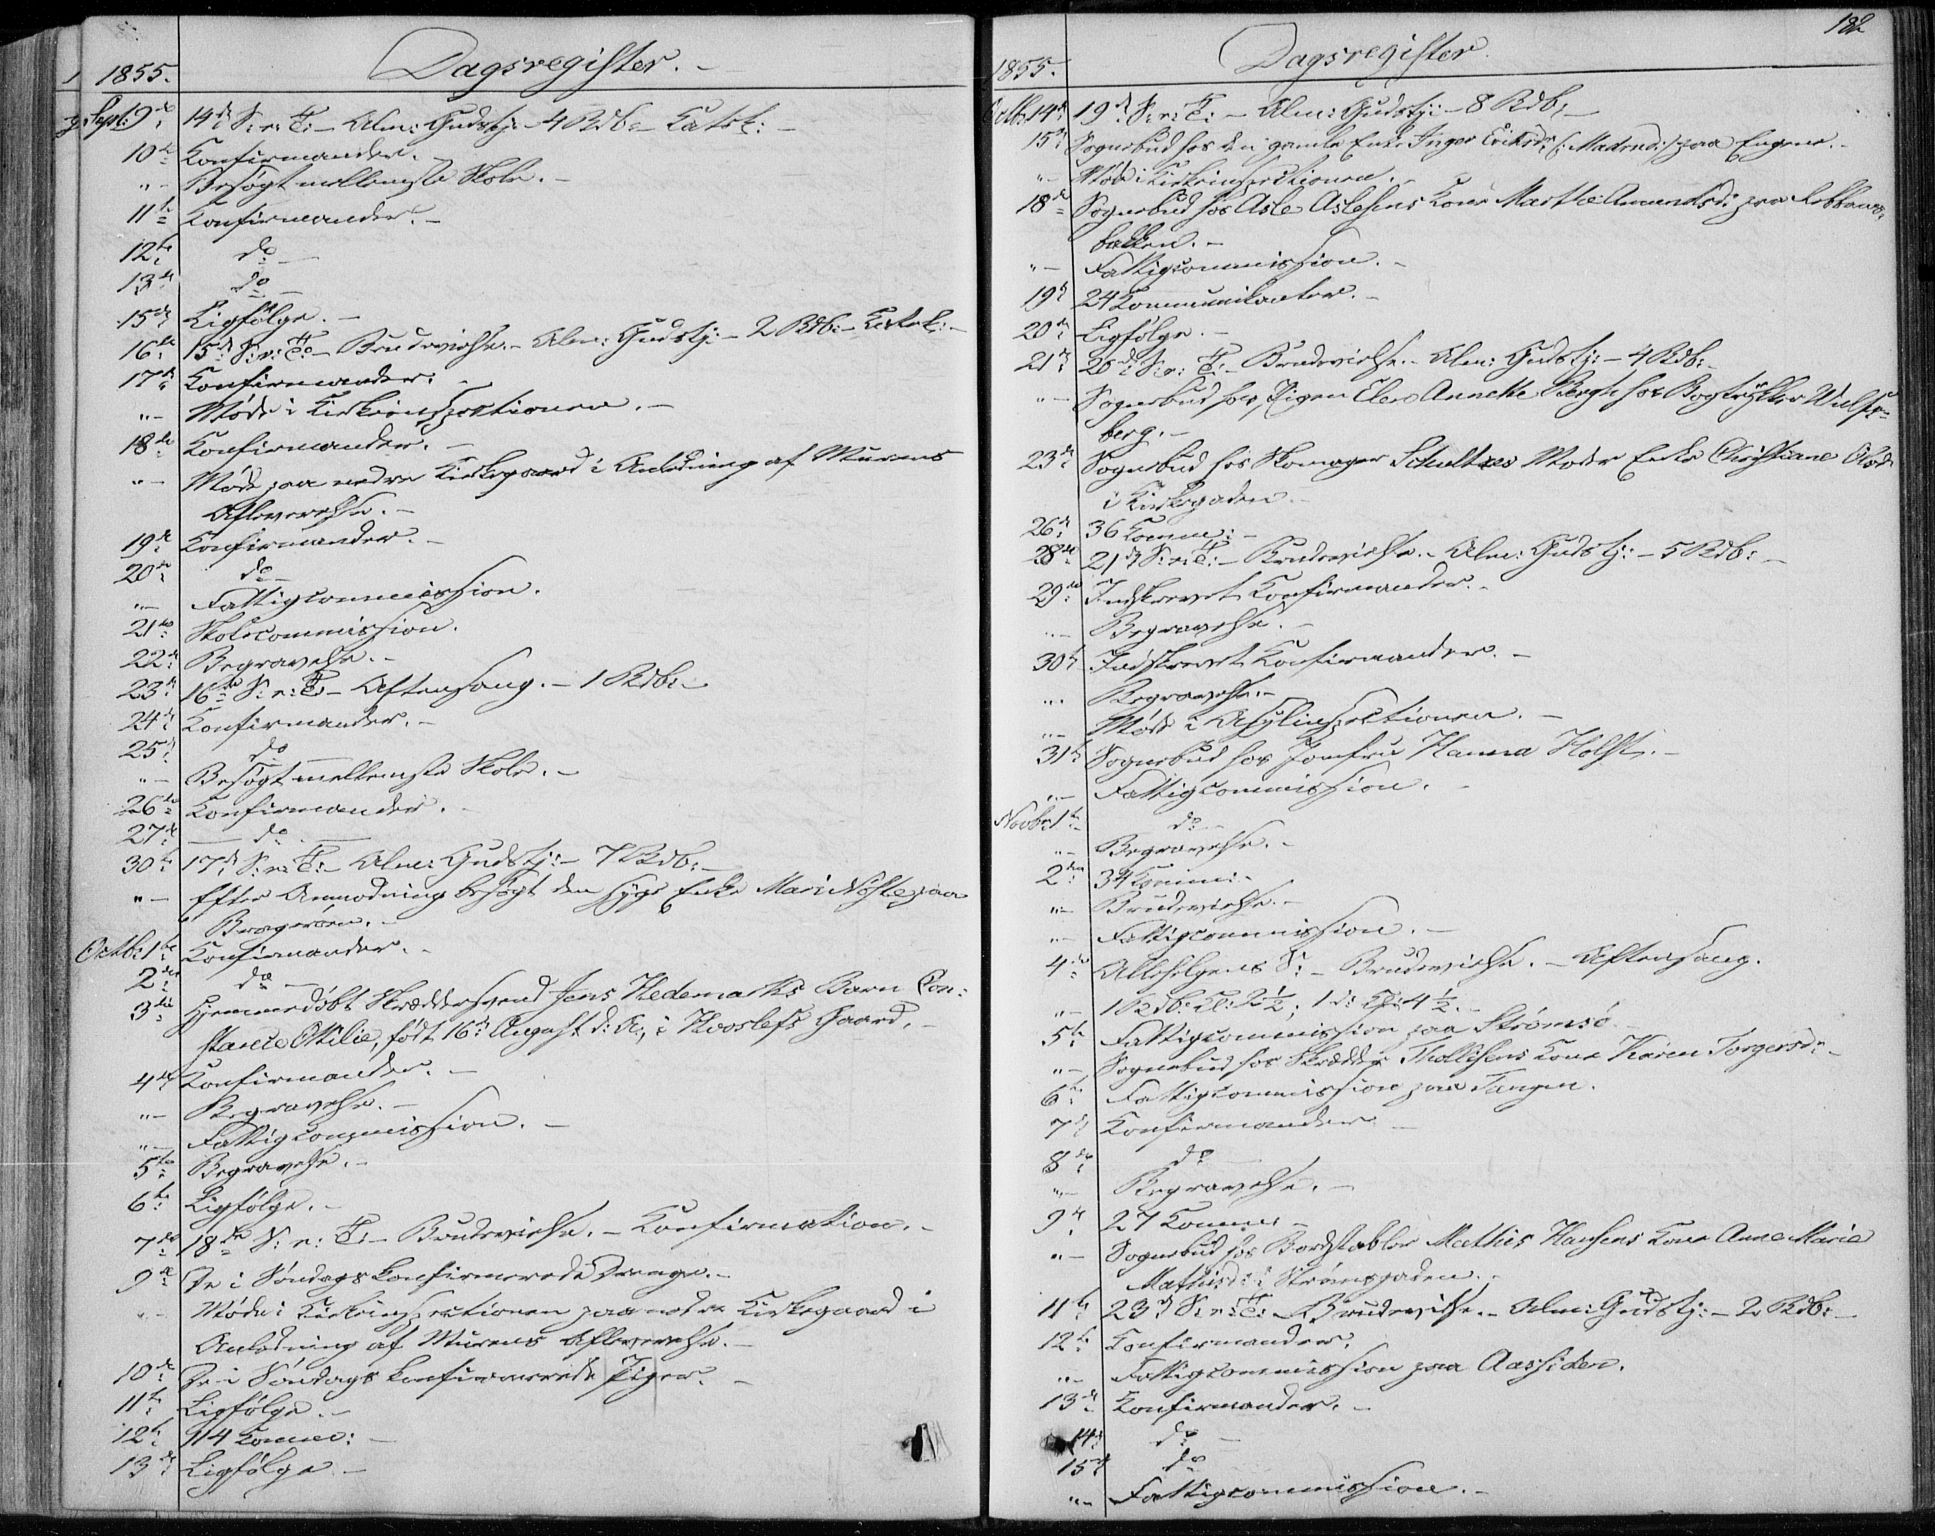 1855.
Dagsregister. -
Sept: 9de 14de S: e: T: - Alm: Gudstj: - 4 Rdb: - Katek: -
10de Konfirmander. -
" - Besøgt mellemste Skole. -
11te Konfirmander. -
12te do -
13de do -
15de Ligfølge. -
16de 15de S: e: T: - Brudevielse. - Alm: Gudstj: - 2 Rdb: - Katek: -
17de Konfirmander. -
" - Møde i Kirkeinspectionen. -
18de Konfirmander. -
" - Møde paa nedre Kirkegaard i Anledning af Murens
Afleverelse. -
19de Konfirmander. -
20de do -
" - Fattigcommission.
21de Skolecommission.
22de Begravelse. -
23de 16de S: e: T: - Aftensang. - 1 Rdb: -
24de Konfirmander. -
25de do
" - Besøgt mellemste Skole. -
26de Konfirmander. -
27de - do -
30te 17de S: e: T: - Alm: Gudstj: - 7 Rdb: -
" - Efter Anmodning besøgt den syge Enke Mari Nøste paa
Bragerøen. -
Octb: 1te Konfirmander. -
2den do -
3die Hjemmedøbt Skræddersvend Jens Hedemarks Barn Con-
stance Otilie, født 16de August d: A:, i Gaard. -
4de Konfirmander. -
" - Begravelse. -
" - Fattigcommission. -
5te Begravelse. -
6te Ligfølge. -
7de 18de S: e: T: - Brudevielse. - Konfirmation. -
9de De i Søndags konfirmerede Drenge. -
" - Møde i Kirkeinspectionen paa nedre Kirkegaard i
Anledning af Murens Afleverelse. -
10de De i Søndags konfirmerede Piger. -
11te Ligfølge. -
12te 114 Komm: -
13de Ligfølge -
182
1855.
Dagsregister.
Octb: 14de 19de S: e: T: - Alm: Gudstj: - 8 Rdb: -
15de Sognebud hos den gamle Enke Inger Eriksd: paa Engene. -
" - Møde i Kirkeinspectionen. -
18de Sognebud hos Asle Aslesens Kone Marthe Amundsd: paa
bakken. -
" - Fattigcommission. -
19de 24 Kommunikanter. -
20de Ligfølge. -
21de 20de S: e: T: - Brudevielse. - Alm: Gudstj: - 4 Rdb: -
" - Sognebud hos Pigen Elen Annette Bergh hos Bogtrykker Wulfs-
berg. -
23de Sognebud hos Skomager Schultzes Moder Enke Christiane Olsd:
i Kirkegaden. -
26de 36 Komm: -
28de 21de S: e: T: - Brudevielse. - Alm: Gudstj: - 5 Rdb: -
29de Indskrevet Konfirmander. -
" - Begravelse. -
30te Indskrevet Konfirmander. -
" - Begravelse. -
" - Møde i Asylinspectionen. -
31te Sognebud hos Jomfru Hanna Holst. -
" - Fattigcommission. -
Novbr: 1te do -
" - Begravelse. -
2den 34 Komm: -
" - Brudevielse. -
" - Fattigcommission. -
4de Allehelgens S: - Brudevielse. - Aftensang.
" - 1 Rdb: Kl: 2½, 1 d: Kl: 4½. -
5te Fattigcommission paa Strømsø. -
" - Sognebud hos Skrædder Thollefsens Kone Karen Torgersd: -
6te Fattigcommission paa Tangen.
7de Konfirmander. -
8de do -
" - Begravelse. -
9de 27 Komm: -
" - Sognebud hos Bordstabler Mathis Hansens Kone Anne Marie
Mathisd: i Strømsgaden. -
11te 23de S: e: T: - Brudevielse. - Alm: Gudstj: - 2 Rdb: -
12te Konfirmander.
" - Fattigcommission paa Aassiden.
13de Konfirmander. -
14de do -
15de do
" - Fattigcommission. -